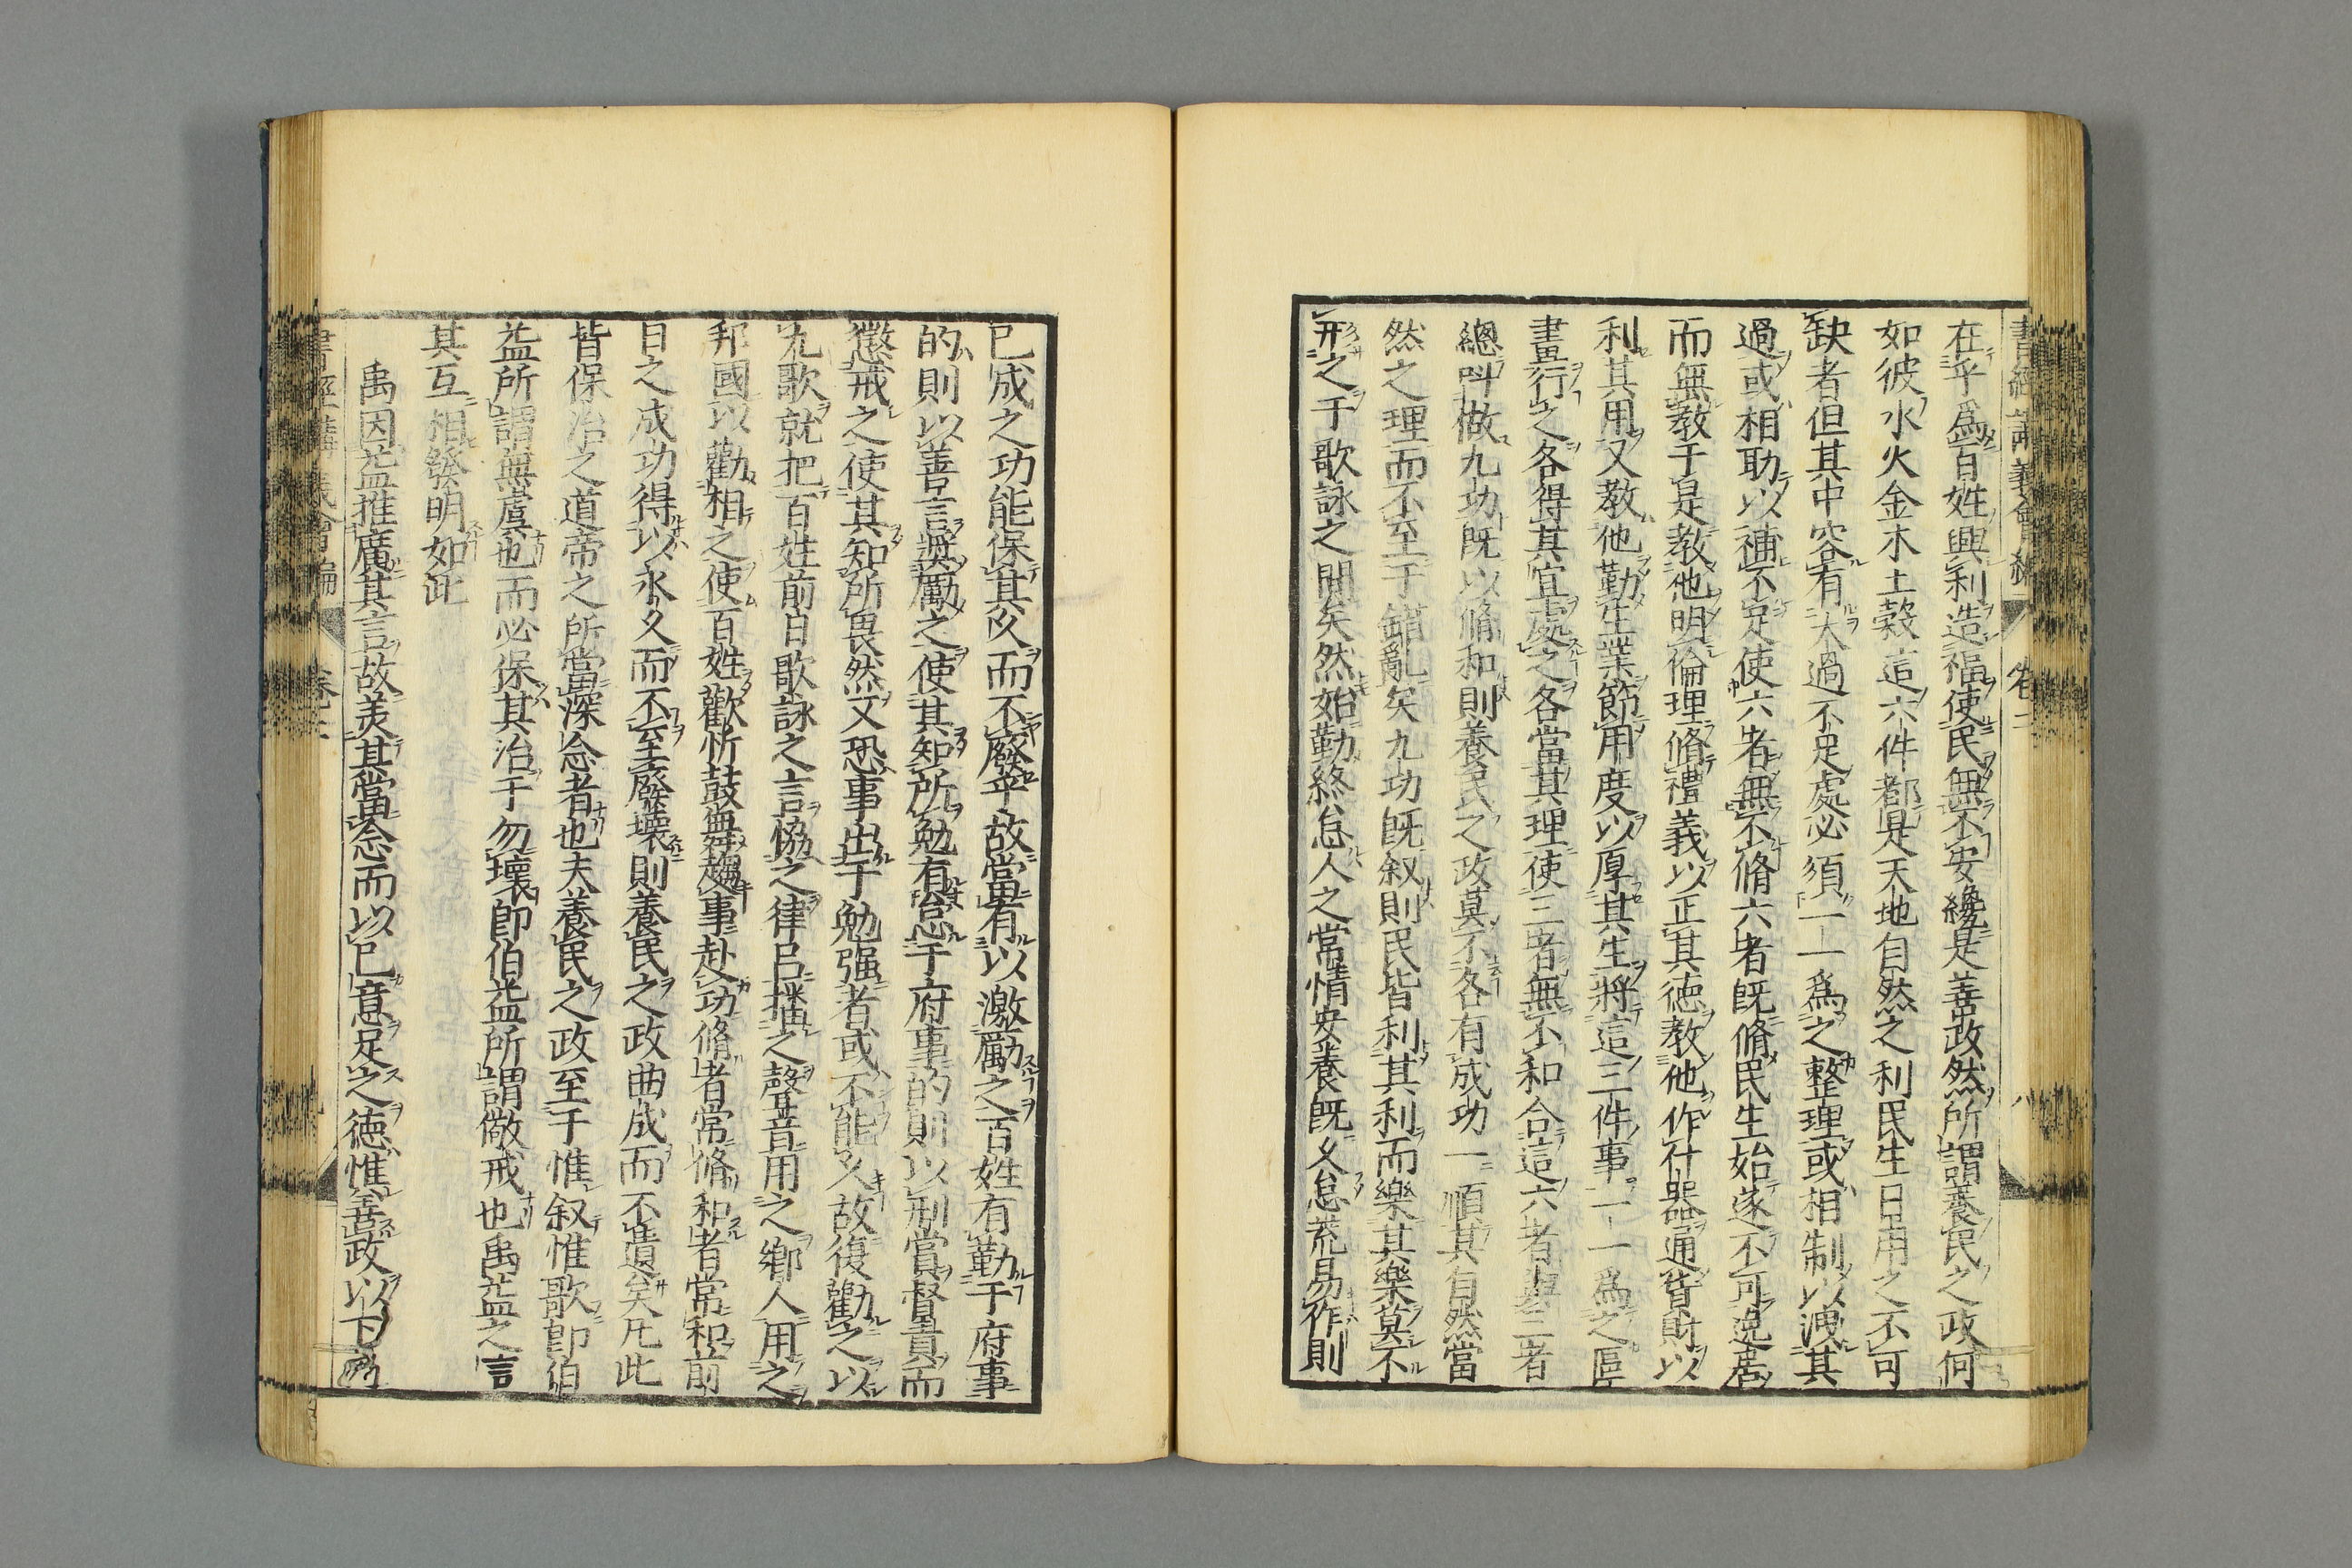 在乎爲百姓興利造福使民無不安纔是善政然所謂養民之政何
如彼水火金木土穀這六件都是天地自然之利民生日用之不可
缺者但其中容有太過不足處必須一一爲之整理或相制以洩其
過或相助以補不足使六者無不脩六者旣脩民生始遂不可逸居
而無教于是教他明倫理脩禮義以正其德教他作什器通貨財以
利其用又教他勤生業節用度以厚其生將這三件事一一爲之區
畫行之各得其宜處之各當其理使三者無不和合這六者與三者
總呌做九功旣以脩和則養民之政莫不各有成功一順其自然當
然之理而不至于錯亂矣九功旣叙則民皆利其利而樂其樂莫不
形之于歌詠之間矣然始勤終怠人之常情安養旣久怠荒易作則
已成之功能保其久而不廢乎故當有以激厲之百姓有勤于府事
的則以善言奬勵之使其知所勉有怠于府事的則以刑賞督責而
懲戒之使其知所畏然又恐事出于勉强者或不能久故復勸之以
九歌就把百姓前日歌詠之言恊之律呂播之聲音用之鄉人用之
邦國以勸相之使百姓歡忻鼓舞趨事赴功脩者常脩和者常和前
日之成功得以永久而不至廢壞則養民之政曲成而不遺矣凡此
皆保治之道帝之所當深念者也夫養民之政至于惟叙惟歌卽伯
益所謂無虞也而必保其治于勿壞卽伯益所謂儆戒也禹益之言
其互相發明如此
禹因益推廣其言故羙其當念而以已意足之德惟善政以下
書經講義會編
卷二
八
書經講義會編
卷之二